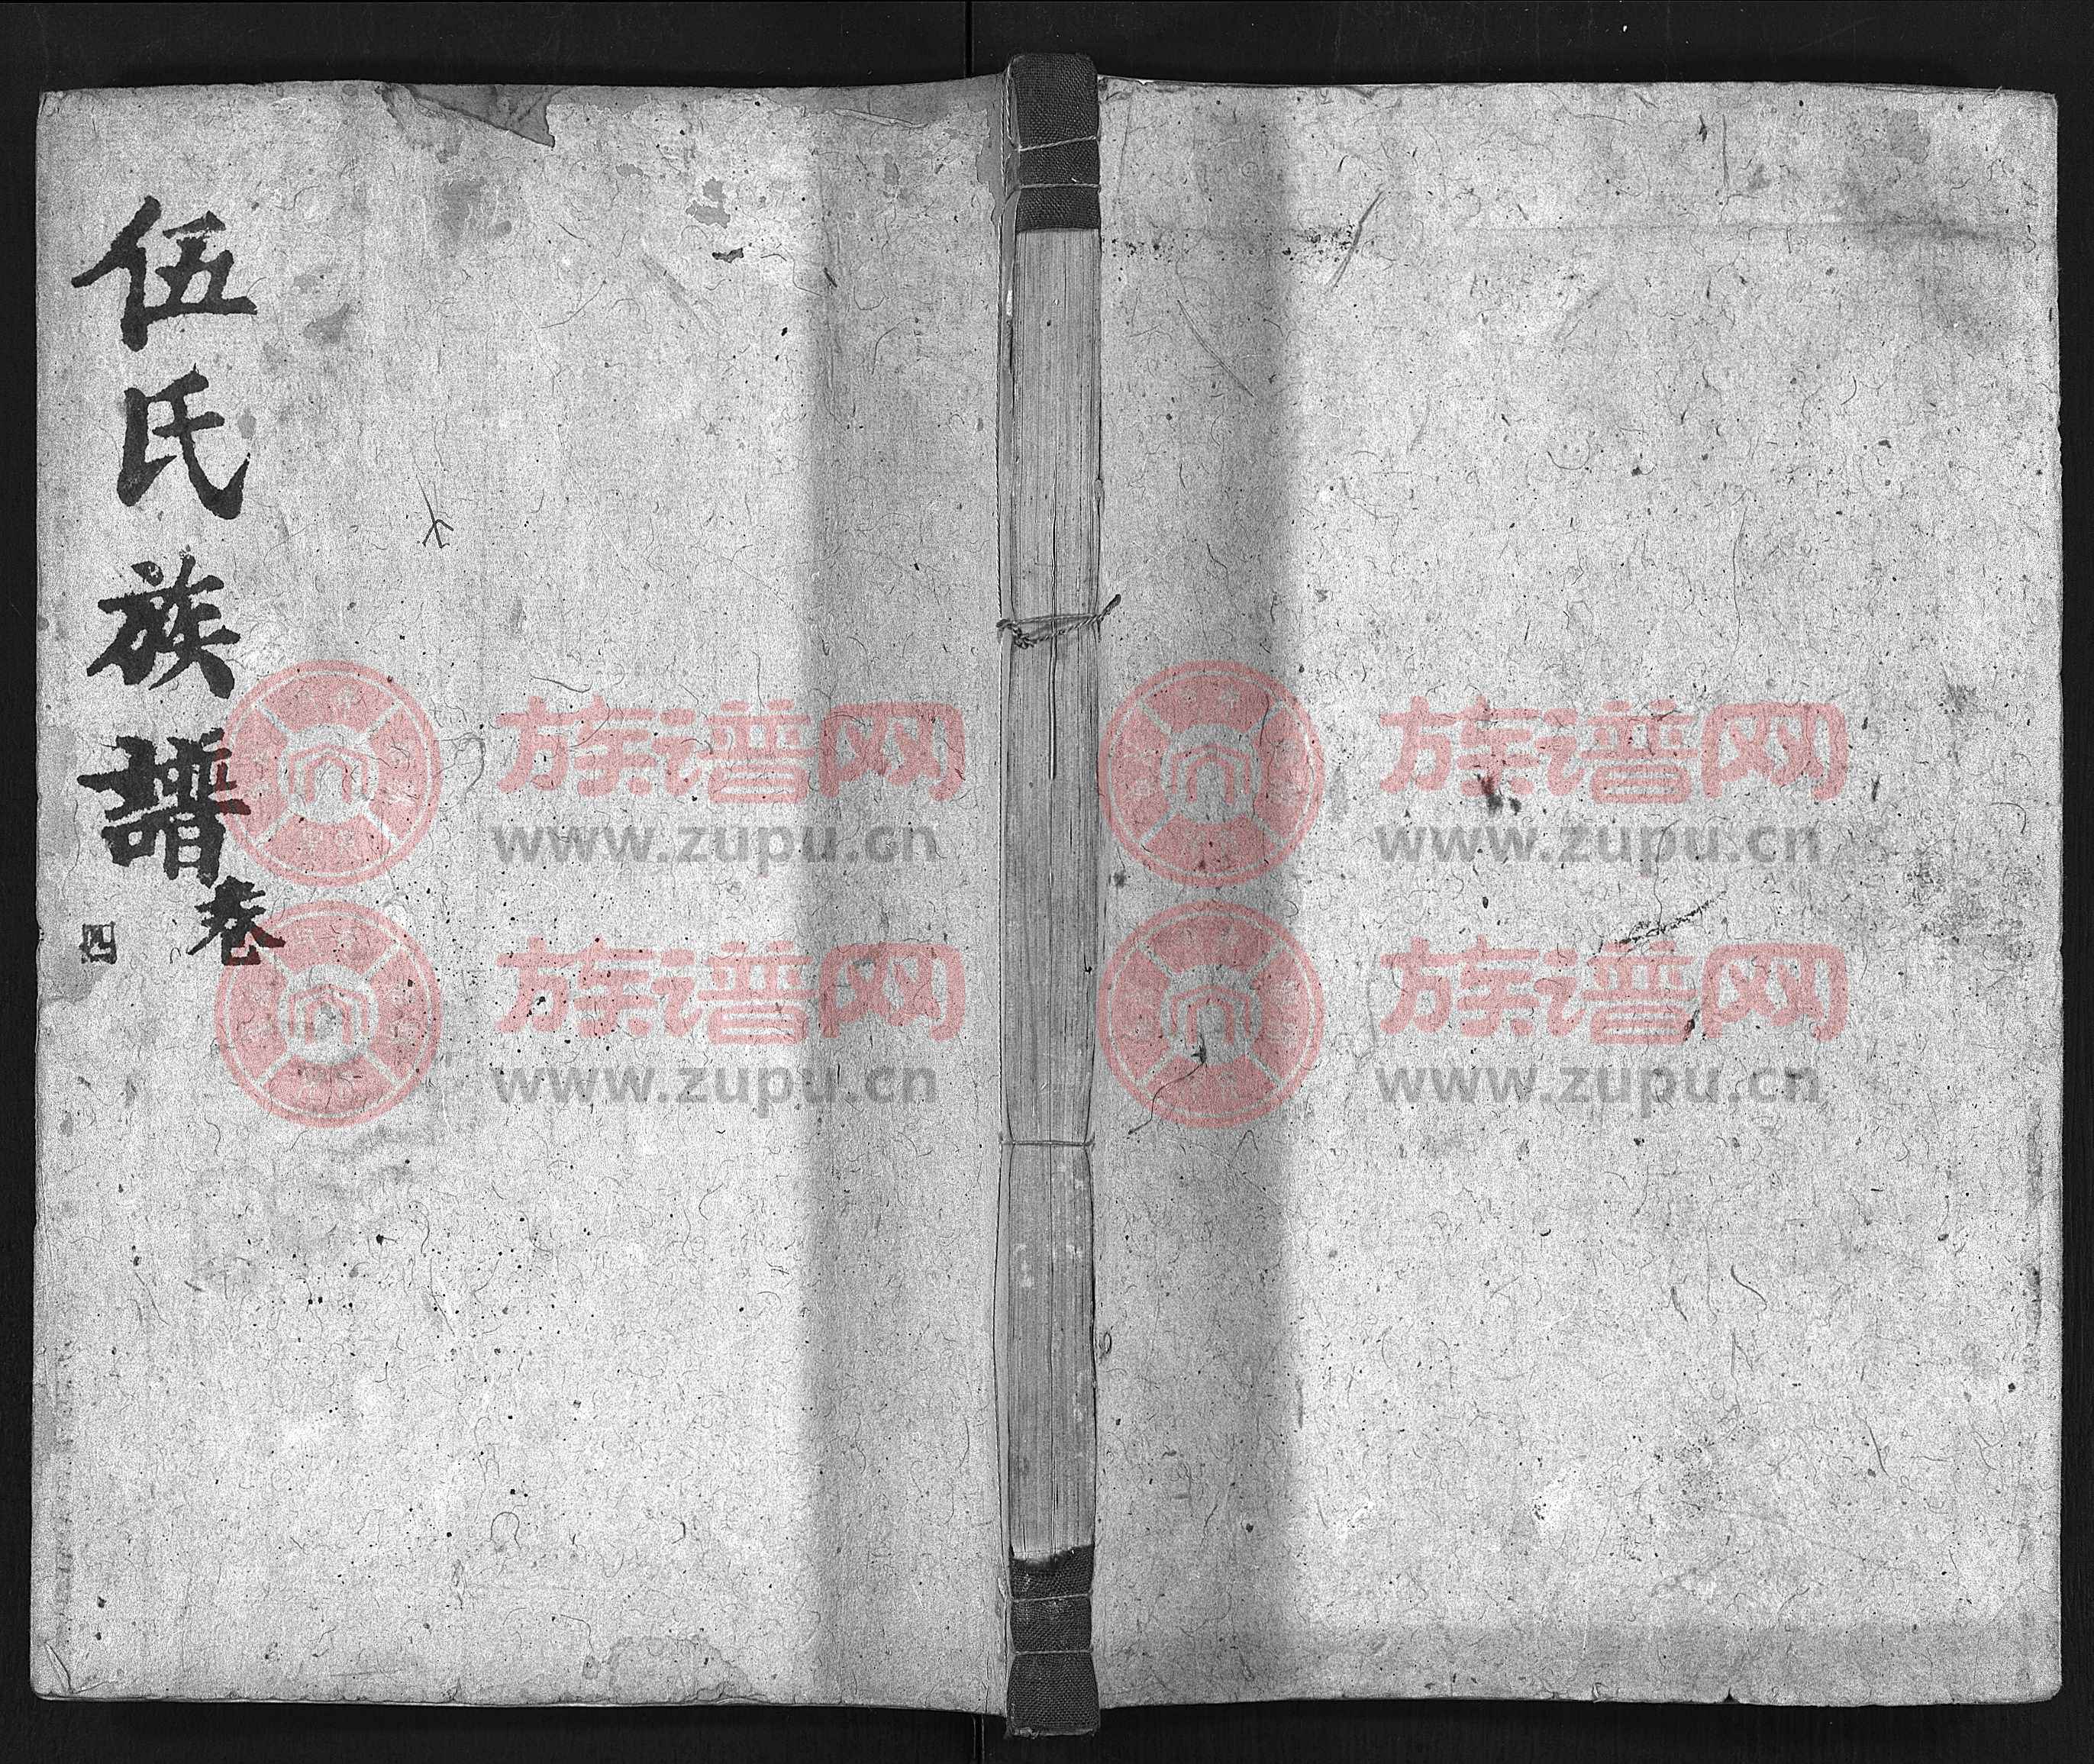 伍氏族譜
卷
四
族谱网
www.zupu.cn
族谱网
www.zupu.cn
族谱网
www.zupu.cn
族谱网
www.zupu.cn